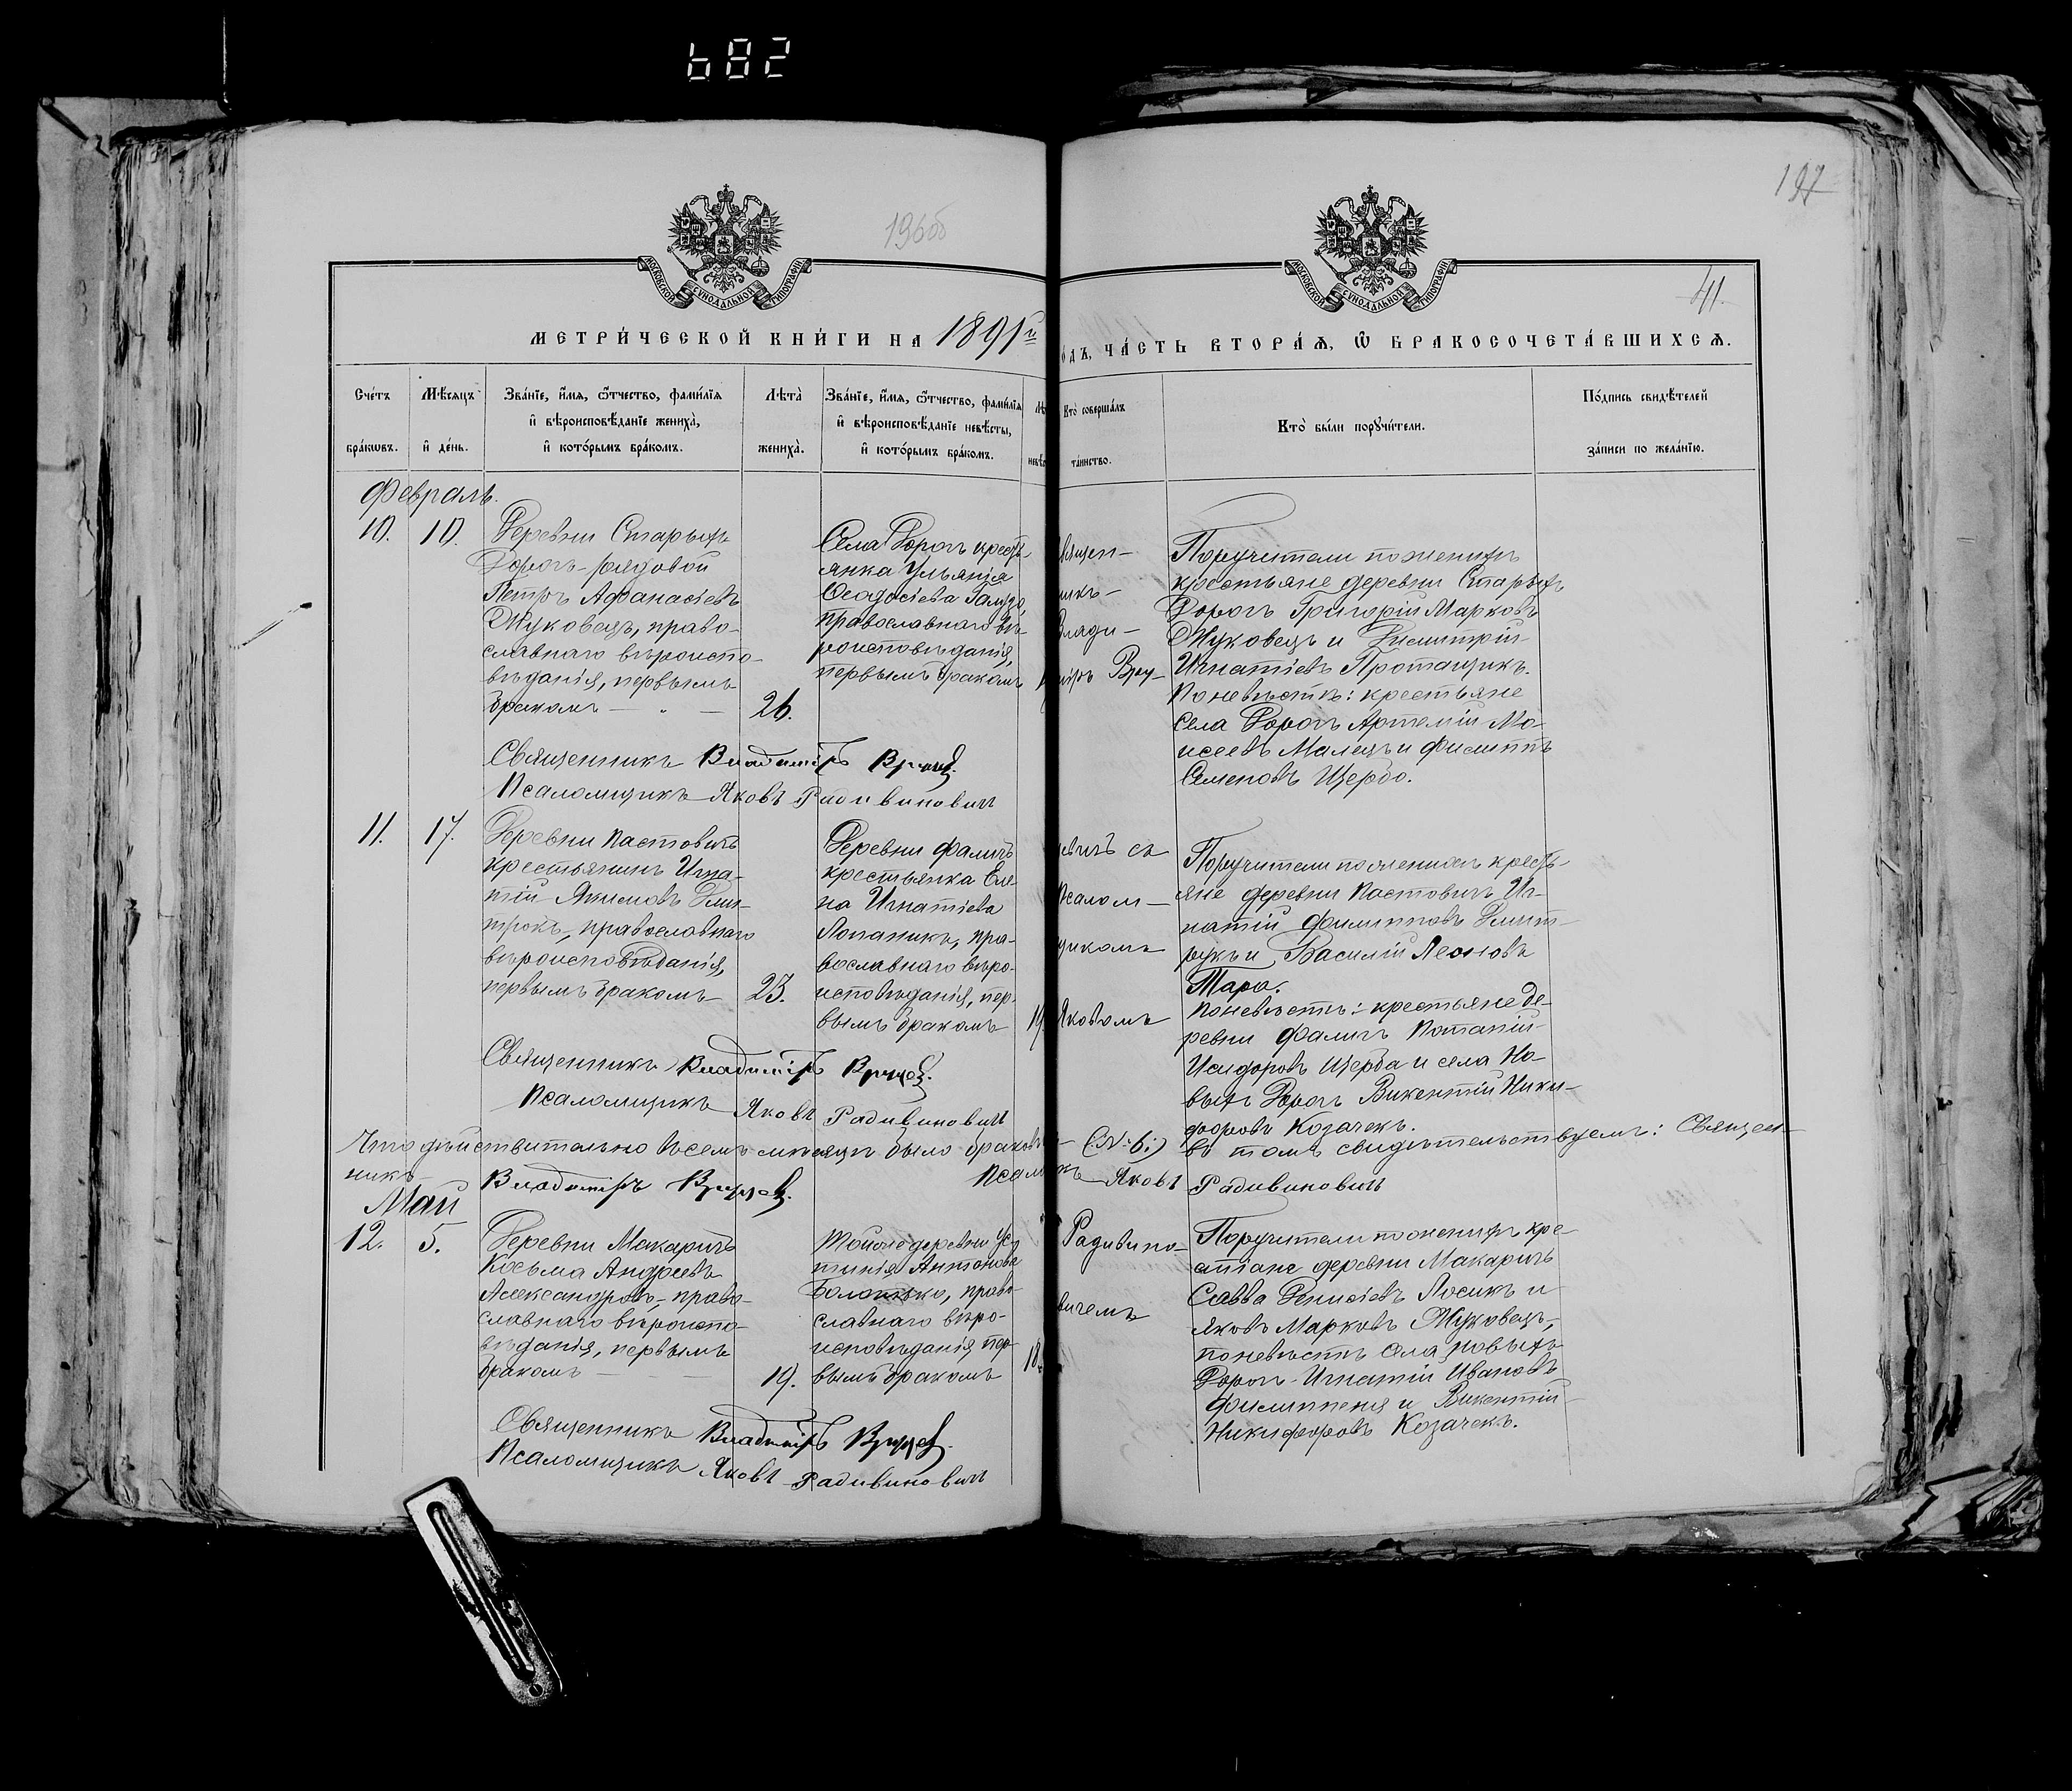 682
197
196об
41.
МОСКОВСКОЙ СѴНОДАЛЬНОЙ ТИПОГРАФІИ
МОСКОВСКОЙ СѴНОДАЛЬНОЙ ТИПОГРАФІИ
МЕТРИ́ЧЕСКОЙ КНИ́ГИ НА 1891й
о́дъ, ЧА́СТЬ ВТОРА́Ѧ, Ѿ БРАКОСОЧЕТА́ВШИХСѦ.
Сче́тъ
бра́кѡвъ.
Мѣ́сѧцъ
и҆ де́нь.
Зва́нїе, и҆́мѧ, ѻ҆́тчество, фами́лїѧ
и҆ вѣроисповѣ́данїе жениха̀,
и҆ кото́рымъ бра́комъ.
Лѣта̀
жениха̀.
Зва́нїе, и҆́мѧ, ѻ҆́тчество, фами́лїѧ
и҆ вѣроисповѣ́данїе невѣ́сты,
и҆ кото́рымъ бра́комъ.
Лѣ
невѣ
Кто̀ соверша́лъ
та́инство.
Кто̀ бы́ли порꙋчи́тели.
По́дпись свидѣ́телей
за́писи по жела́нїю.
Февраль.
10. 10.
Деревни Старыхъ
Дорогъ рядовой
Петръ Аѳанасіевъ
Жуковецъ, право-
славнаго вѣроиспо-
вѣданія, первымъ
бракомъ
26.
Села Дорогъ кресть-
янка Ульянія
Ѳеодосіева
православнаго вѣ-
роисповѣданія,
первымъ бракомъ
вящен-
икъ-
Влади-
міръ Вру-
Поручители по женихѣ
крестьяне деревни Старыхъ
Дорогъ Григорій Марковъ
Жуковецъ и Димитрій
Игнатіевъ Протащикъ.
По невѣстѣ: крестьяне
села Дорогъ Артемій Мо-
исеевъ Малецъ и Филиппъ
Семеновъ Щербо.
Священникъ Владиміръ
Псаломщикъ Яковъ Радивиновичъ
11. 17.
Деревни Пастовичъ
крестьянинъ Игна-
тій Якимовъ Дми-
трокъ, православнаго
вѣроисповѣданія,
первымъ бракомъ
23.
Деревни Фаличъ
крестьянка Еле-
на Игнатіева
Лопаникъ, пра-
вославнаго вѣро-
исповѣданія, пер-
вымъ бракомъ
19
съ
Псалом-
щикомъ
Яковомъ
Поручители по женихѣ кресть-
яне деревни Пастовичъ Иг-
натій Филипповъ Дмит-
рукъ и Василій Леоновъ
Тара.
По невѣстѣ: крестьяне де-
ревни Фаличъ Потапій
Исидоровъ Щерба и села Но-
выхъ Дорогъ Викентій Ники-
форовъ Козачекъ.
Священникъ Владиміръ
Псаломщикъ Яковъ Радивиновичъ
Что дѣйствительно восемь мѣсяцъ было браковъ (№ 6:) въ томъ свидѣтельствуемъ: Священ-
никъ Владиміръ Псаломщикъ Яковъ Радивиновичъ
Май
12. 5.
Деревни Макаричъ
Косьма Андреевъ
Александровъ, право-
славнаго вѣроиспо-
вѣданія, первымъ
бракомъ
19.
Той же деревни Ус-
тинія Антонова
Болотько, право-
славнаго вѣро-
исповѣданія пер-
вымъ бракомъ
18.
Радивино-
вичемъ
Поручители по женихѣ кре-
стіане деревни Макаричъ
Савва Денисіевъ Лосикъ и
Яковъ Марковъ Жуковецъ,
по невѣстѣ села Новыхъ
Дорогъ Игнатій Ивановъ
Филиппеня и Викентій
Никифоровъ Козачекъ.
Священникъ Владиміръ
Псаломщикъ Яковъ Радивиновичъ